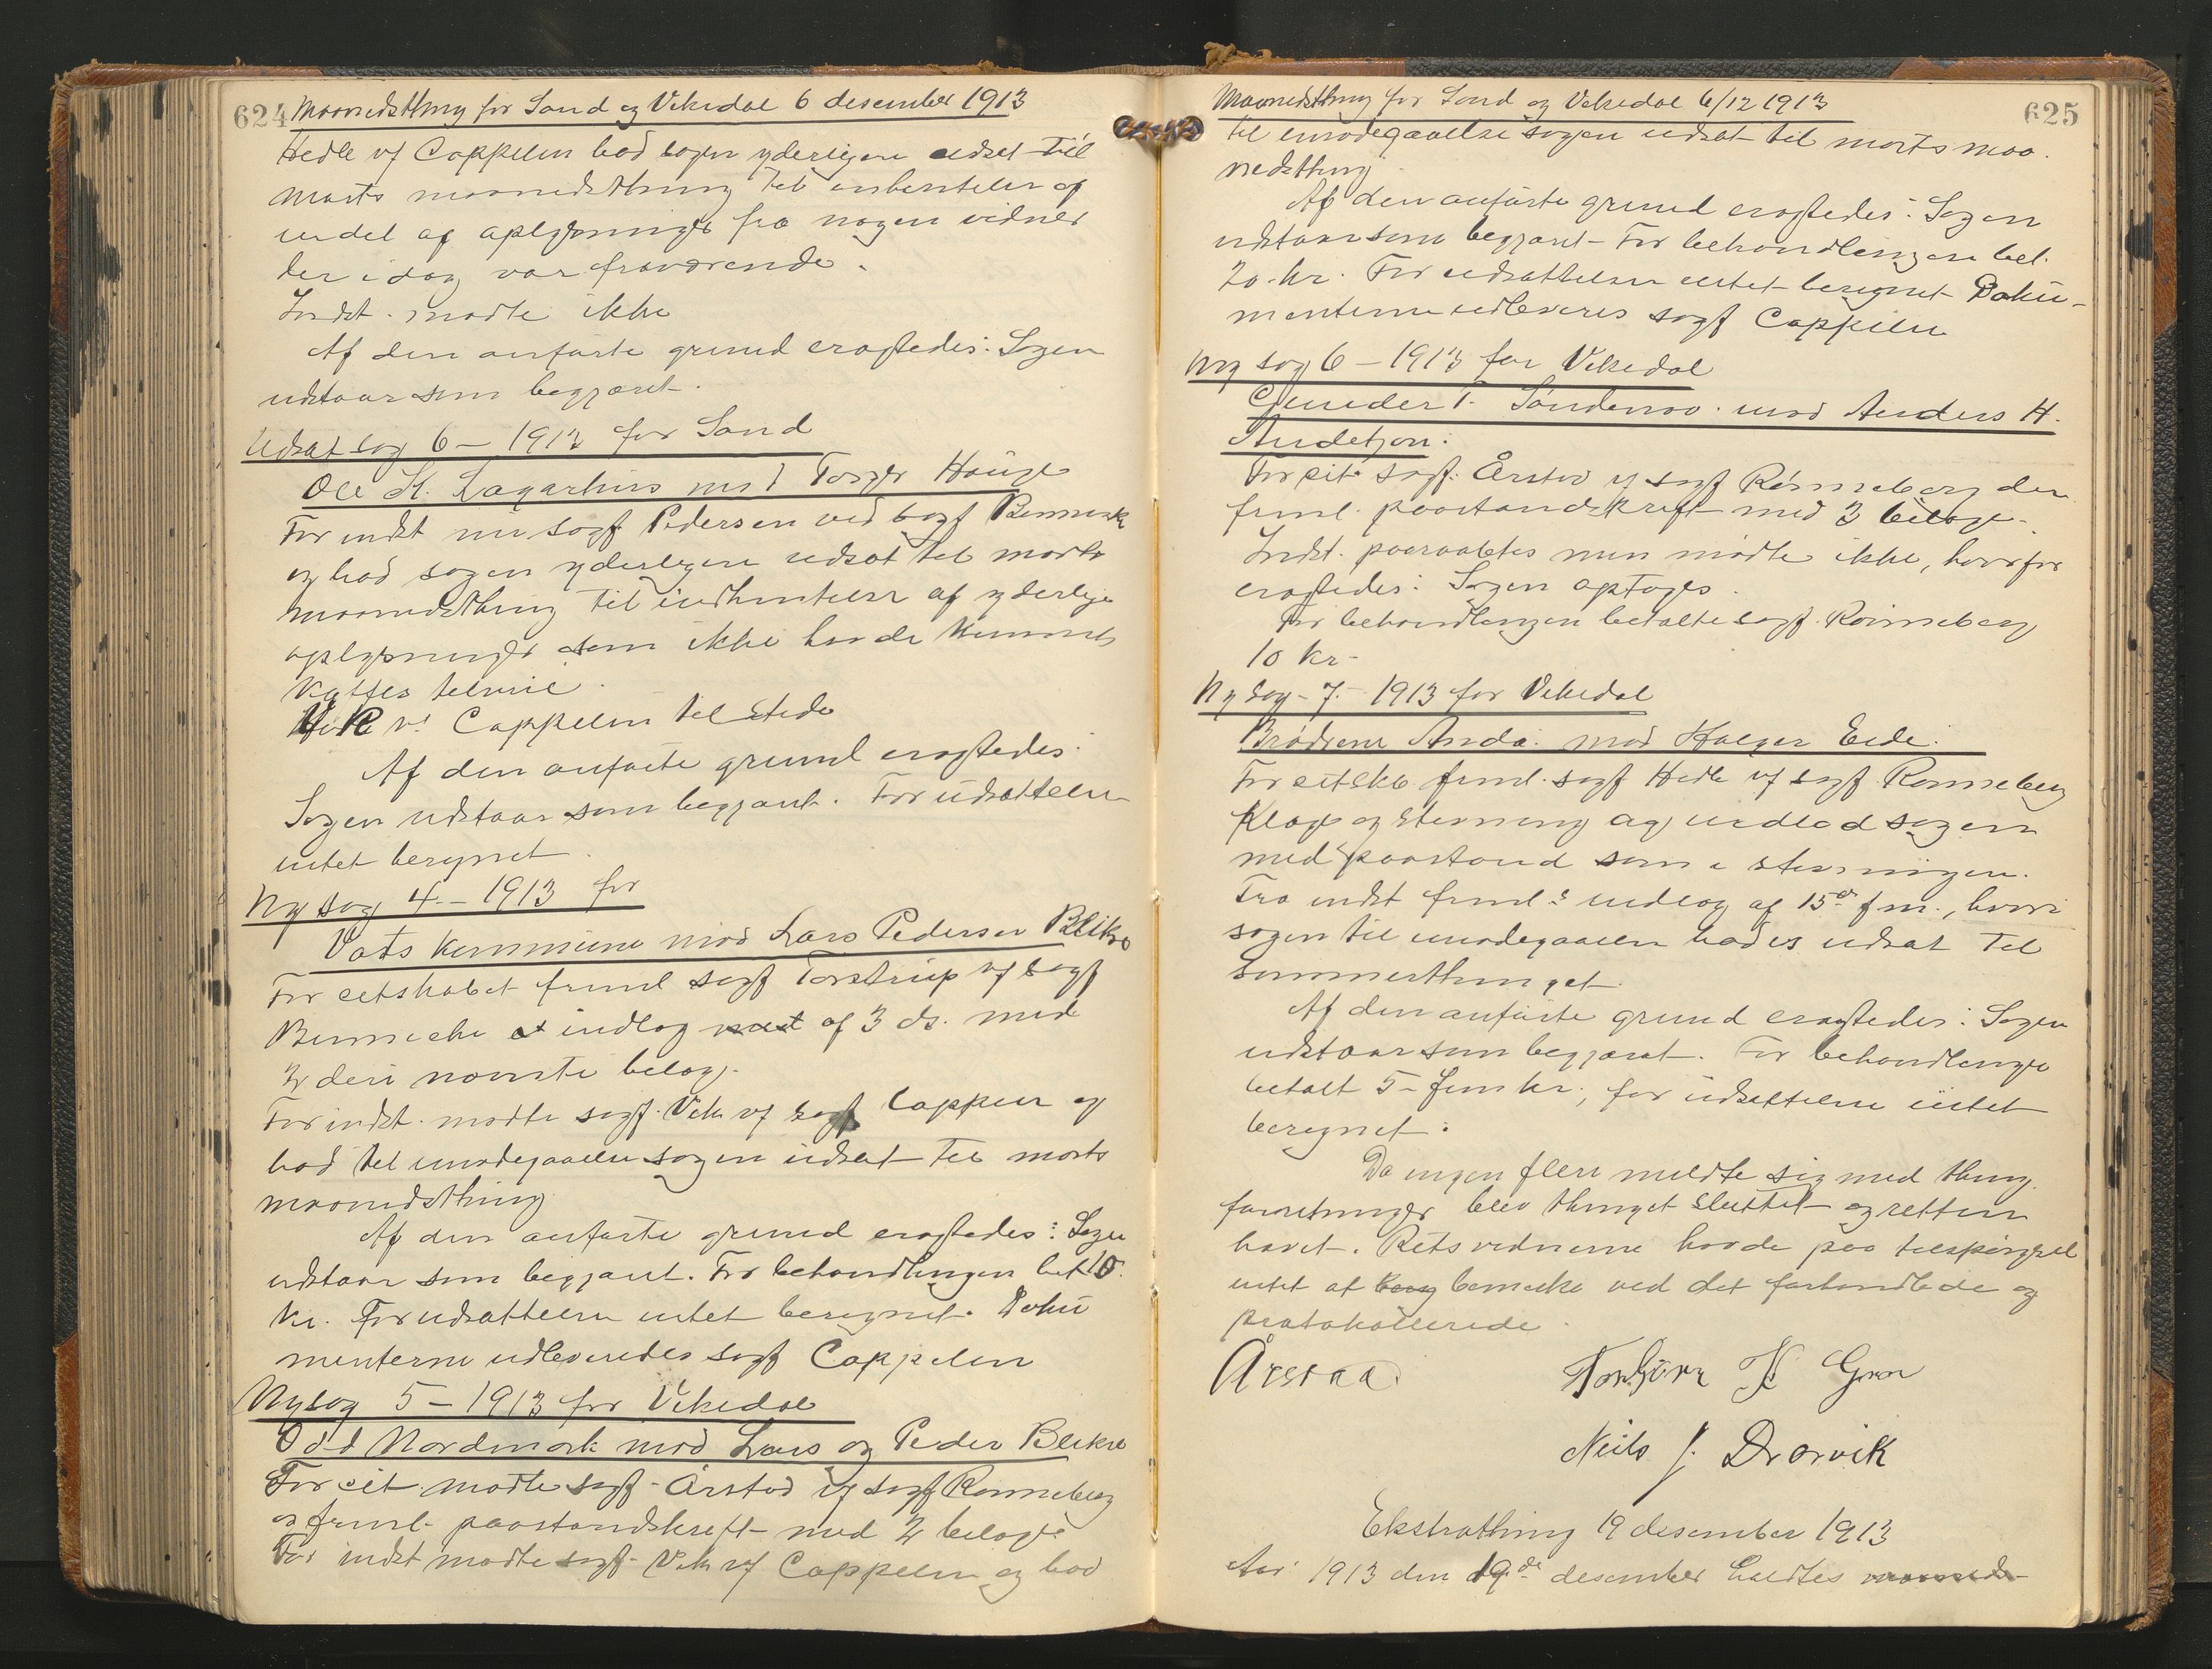 624 Maanedsthing for Sand og Vikedal 6 desember 1913
Hedle vf Cappelen bad sagen yderligere udsat til
marts maanedsthing til indhentelse af
endel af oplysninger fra nogen vidner
der idag var fraværende.
Indst. mødte ikke
Af den anførte grund eragtedes: Sagen
udstaar som begjæret.
Udsat sag 6 – 1913 for Sand
Ole K. Lagarhus mod Torger Hauge
For indst mø sagf. Pedersen ved sagf Benneche
og bad sagen yderligere udsat til marts
maanedsthing til indhentelse af yderlige
oplysninger som ikke havde kunnet
kaffes tilveie.
Hedle v. Cappelen tilstede
Af den anførte grund eragtedes:
Sagen udstaar som begjært. For udsættelsen
intet beregnet.
Ny sag 4 – 1913 for
Vats kommune mod Lars Pedersen Blikra
For citskabet freml sagf Torstrup vf sagf
Benneche et indlæg af 3 ds. med
2 deri nævnte bilag.
For indst. mødte sagf. Vik vf sagf Cappelen og
bad til imødegaaelse sagen udsat til marts
maanedsthing
Af den anførte grund eragtedes: Sagen
udstaar som begjært. For behandlingen bet 10
kr. For udsættelsen intet beregnet. Doku
menterne udleveredes sagf Cappelen
Ny sag 5 – 1913 for Vikedal
Odd Nordmark mod Lars og Peder Blikra
For cit mødte sagf. Årstad vf sagf Rønneberg
og freml. paastandskrift med 2 bilage
For indst mødte sagf. Vik vf Cappelen og bad
Maanedsthing for Sand og Vikedal 6/12 1913 625
til imødegaaelse sagen udsat til marts maa
nedsthing.
Af den anførte grund eragtedes: Sagen
udstaar som begjæret – For behandlingen bet.
20 kr. For udsættelsen intet beregnet Doku-
menterne udleveres sagf Cappelen
Ny sag 6 – 1913 for Vikedal
Gunder T. Søndenaa mod Anders H.
For cit. sagf. Årstad vf sagf Rønneberg der
freml. paastandskrift med 3 bilage.
Indst. paaraabtes men mødte ikke, hvorfor
eragtedes: Sagen optages.
For behandlingen betalte sagf. Rønneberg
10 kr –
Ny sag – 7 – 1913 for Vikedal
Brødrene Anda mod Holger Eide.
For citskb freml. sagf Hedle vf sagf Rønneberg
klage og stevning og indlod sagen
med paastand som i stevningen.
Fra indst freml.s indlæg af 15de f m., hvori
sagen til imødegaaelse bades udsat til
sommerthinget.
Af den anførte grund eragtedes: Sagen
udstaar som begjæret. For behandlingen
betalt 5 – fem kr, for udsættelsen intet
beregnet.
Da ingen flere meldte sig med thing
forretninger blev thinget sluttet og retten
hævet. Retsvidnerne havde paa tilspørgsel
intet at bemerke ved det forhandlede og
protokollerede.
Årstad. Torbjørn K Grov
Neils J. Drarvik
Ekstrathing 19 desember 1913
Aar 1913 den 19de desember holdtes maaneds-